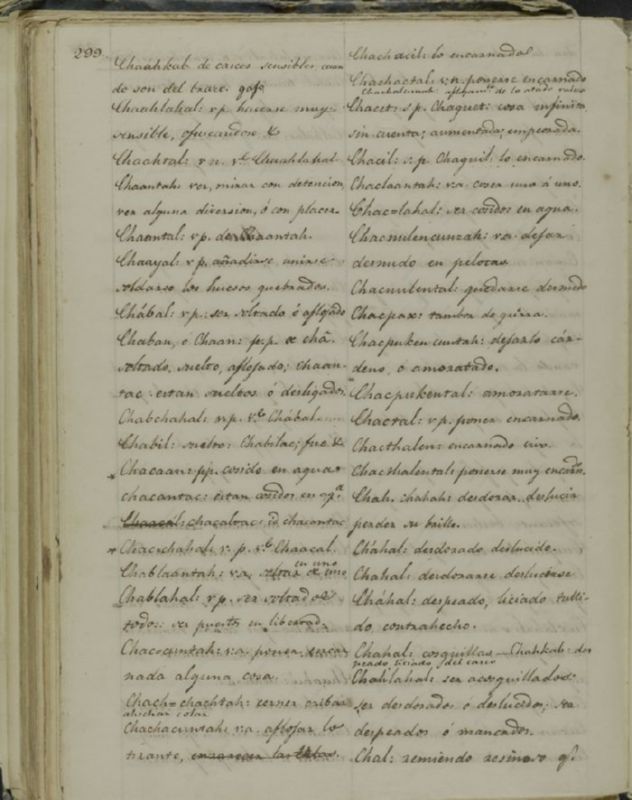 299
Chaahkab: de carces sensibles, como
de son del trave. gafe
Chaahlahal: v.p. hacerse muy
sensible, ofuscandose &
Chaahtal: v.n. v.e Chaahlahal
Chaantah: ver, mirar con detencion,
ver alguna diversion, ó con placer.
Chaantal: v.p. de Chaantah.
Chaayal: v.p. añadirse unirse
soldarse los huesos quebrados.
Chábal: v.p.: ser soltado ó aflojado
Chaban, ó Chaan: p.p. de chā.
soltado, suelto, aflojado; chaan-
tac estan sueltos ó desligados.
Chabchahal: v.p. v.e Chábal.
Chabil: suelto: Chabilac; fue &
Chacaan: p.p. cosido en agua
chacantac: estan cosidos en ag.a
chacaloac: id chacantac
Chacchahal: v. p. v.e Chaacal.
Chablaantah: v.a. soltar de uno
en uno
Chablahal: v.p. ser soltados
todos: ser puestos en libertad.
Chaccuntah: v.a. poner encar
nada alguna cosa.
Chach=chachtah: cerner cribar
ahechar colar
Chachacuntah: v.a. aflojar lo
tirante,
Chachacil: lo encarnado
Chachactal: v.n. ponerse encarnado
Chacet: s.p. Chaquet: cosa infinita
sin cuenta; aumentada; empeorada.
Chacil: s.p. Chaquil: lo encarnado.
Chaclaantah: v.a. coser uno á uno.
Chac=lahal: ser cosidos en agua.
Chacnulencunzah: v.a. dejar
desnudo en pelotas
Chacnulental: quedarse desnudo
Chacpax: tambor de guerra.
Chacpukencuntah: dejarlo cár-
deno, o amoratado.
Chacpukental: amoratarse.
Chactal: v.p. poner encarnado.
Chacthalen: encarnado vivo.
Chacthalental: ponerse muy encarn.
Chah. chahah: desdorar, deslucir
perder su brillo.
Cháhal: desdorado deslucido.
Chahal: desdorarse deslucirse
Cháhal: despeado, liciado tulli-
do contrahecho.
Chahal: cosquillas – Chahkab: des
peado, liciado del casco
Chahlahal: ser acosquillados
ser desdorados o deslucidos; ser
despeados ó mancados.
Chal: remiendo resinoso q.e